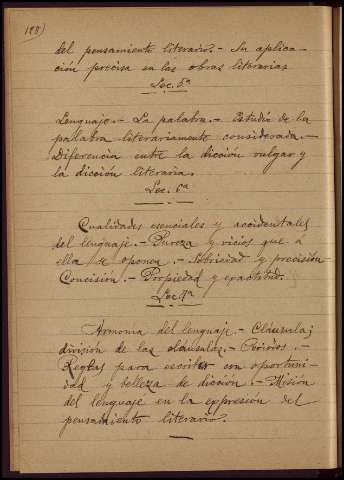 128)
del pensamiento literario.- Su aplica-
ción precisa en las obras literarias
Lec. 5ª
Lenguaje.- La palabra.- Estudio de la
palabra literariamente considerada.-
Diferencia entre la dicción vulgar y
la dicción literaria.
Lec. 6ª
Cualidades esenciales y accidentales
del lenguaje.- Pureza y vicios que á
ella se oponen.- Sobriedad y precisión
Concisión.- Propiedad y exactitud.
Lec. 7ª
Armonia del lenguaje.- Cláusula;
división de las cláusulas.- Periodos.-
Reglas para escribir con oportuni-
dad y belleza de dicción.- Misión
del lenguaje en la expresión del
pensamiento literario.